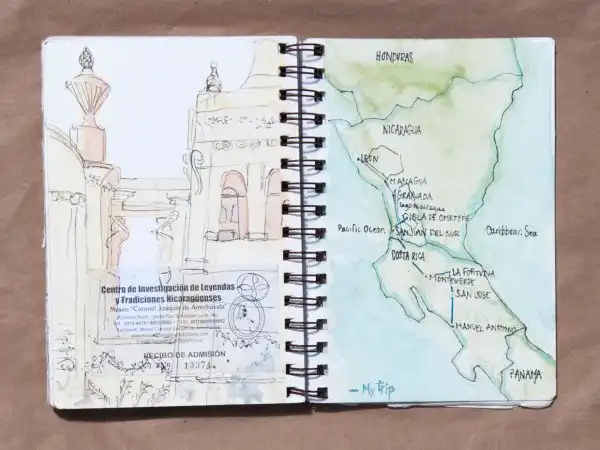 Centro de Investigación de Leyendas
y Tradiciones Nicaragüenses
Museo "Coronel Joaquín de Arrechavala"
RECIBO DE ADMISIÓN
Nº 13374
HONDURAS
NICARAGUA
LEÓN
MANAGUA
GRANADA
ISLA DE OMETEPE
Pacific Ocean
SAN JUAN DEL SUR
Caribbean Sea
COSTA RICA
LA FORTUNA
MONTEVERDE
SAN JOSE
MANUEL ANTONIO
PANAMA
My trip